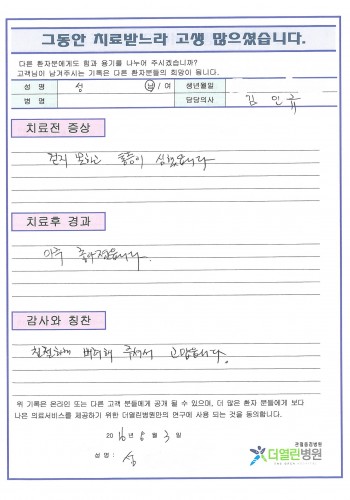 그동안 치료받느라 고생 많으셨습니다.
다른 환자분에게도 힘과 용기를 나누어 주시겠습니까?
고객님이 남겨주시는 기록은 다른 환자분들의 희망이 됩니다.
성 명 성 남 / 여 생년월일
병 명 담당의사 김 민 규
치료전 증상
걷지 못하고 통증이 심했습니다
치료후 경과
아주 좋아졌습니다.
감사와 칭찬
친절하게 배려해 주셔서 고맙습니다.
위 기록은 온라인 또는 다른 고객 분들에게 공개 될 수 있으며, 더 많은 환자 분들에게 보다
나은 의료서비스를 제공하기 위한 더열린병원만의 연구에 사용 되는 것을 동의합니다.
2016년 8월 3일
성 명 : 성
관절중점병원
더열린병원